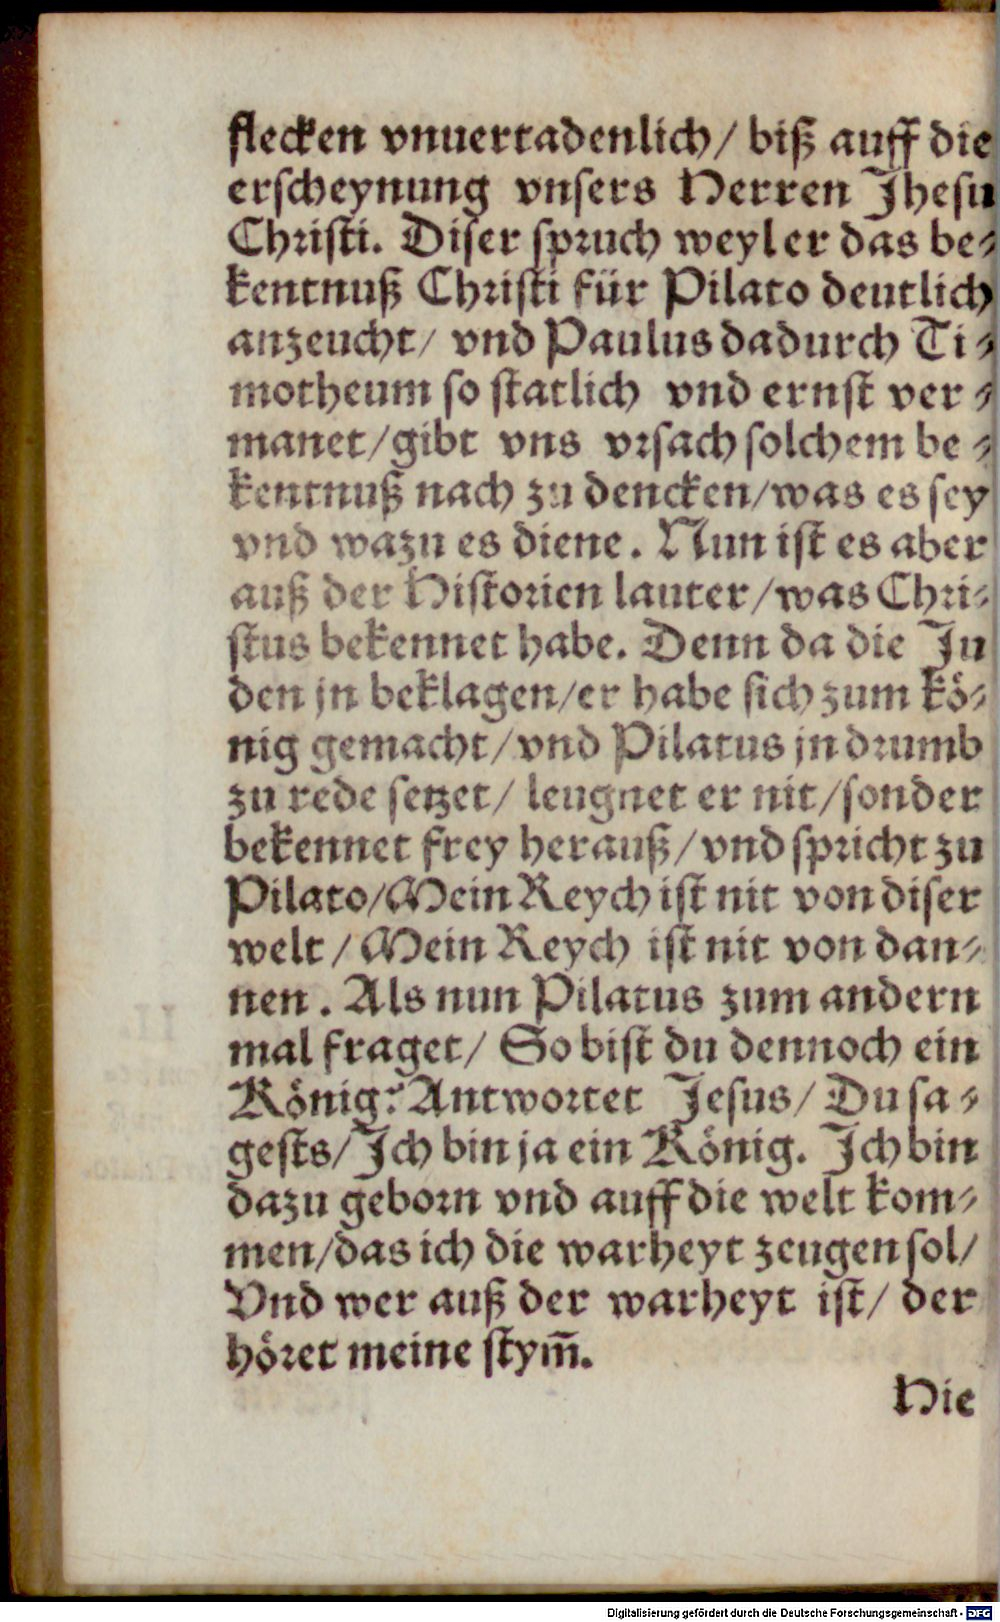 flecken vnuertadenlich/ biß auff die
erscheynung vnsers Herren Jhesu
Christi. Diser spruch weyl er das be-
kentnuß Christi für Pilato deutlich
anzeucht/ vnd Paulus dadurch Ti-
motheum so statlich vnd ernst ver-
manet/gibt vns vrsach solchem be-
kentnuß nach zu dencken/was es sey
vnd wazu es diene. Nun ist es aber
auß der Historien lauter/was Chri-
stus bekennet habe. Denn da die Ju
den jn beklagen/er habe sich zum kö-
nig gemacht/vnd Pilatus jn drumb
zu rede setzet/ leugnet er nit/sonder
bekennet frey herauß/vnd spricht zu
Pilato/Mein Reych ist nit von diser
welt/ Mein Reych ist nit von dan-
nen. Als nun Pilatus zum andern
mal fraget/ So bist du dennoch ein
König? Antwortet Jesus/ Du sa-
gests/Jch bin ja ein König. Jch bin
dazu geborn vnd auff die welt kom-
men/das ich die warheyt zeugen sol/
Vnd wer auß der warheyt ist/ der
höret meine stym̄.
Hie
Digitalisierung gefördert durch die Deutsche Forschungsgemeinschaft - DFG